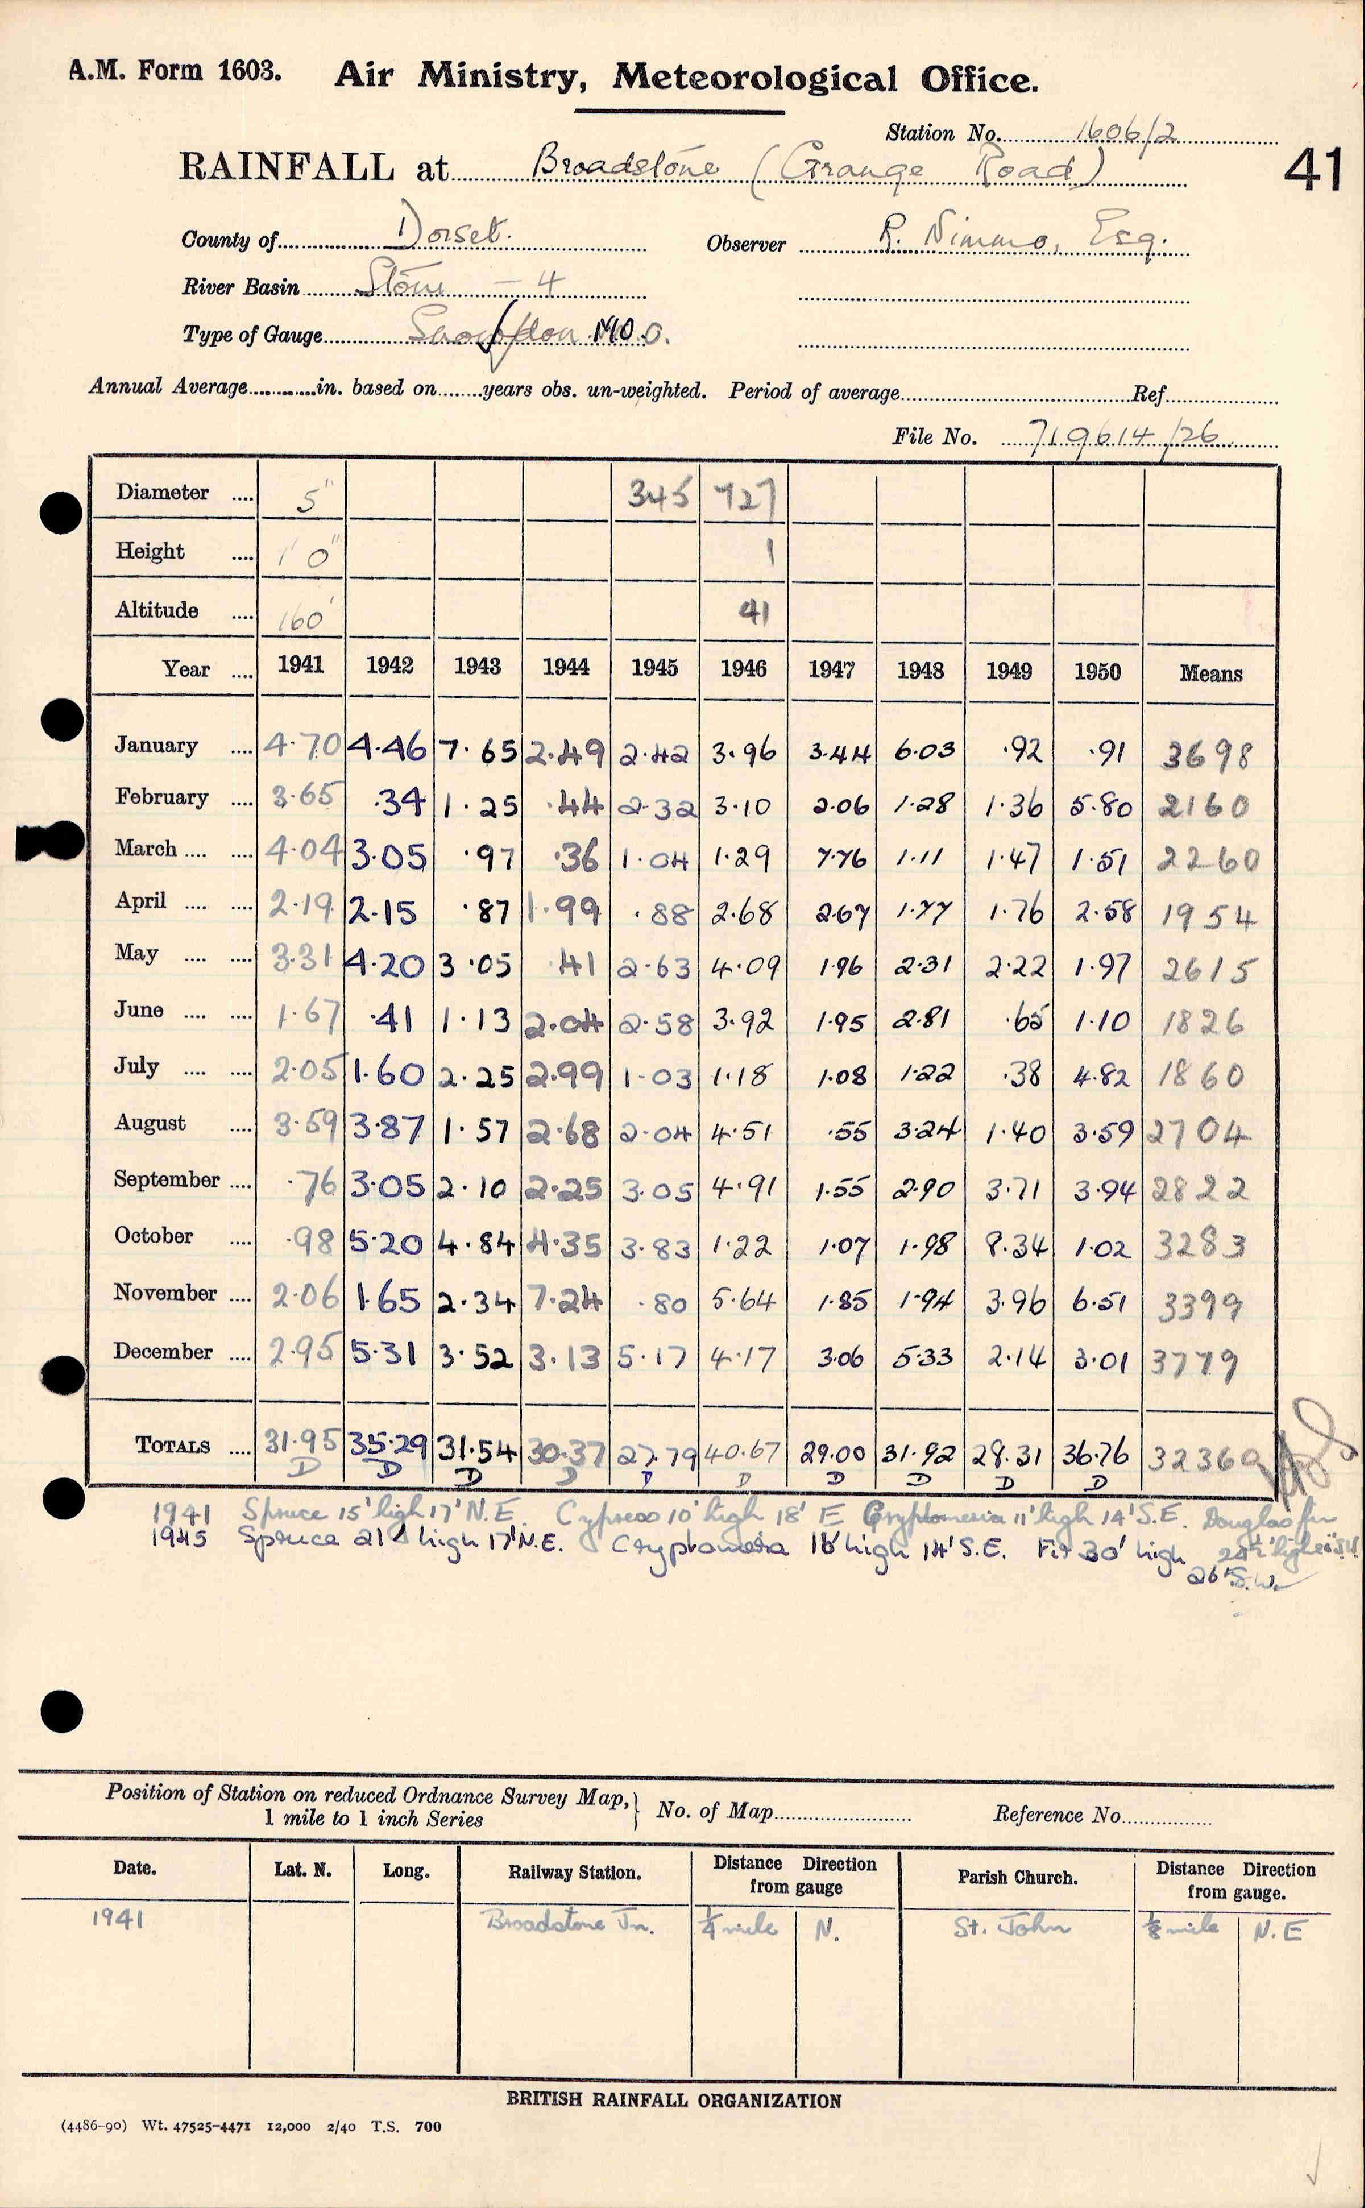 A.M. Form 1603. Air Ministry, Meteorological Office.
Station No. 1606/2
RAINFALL at Broadstone (Grange Road) 41
County of Dorset. Observer R. Nimmo, Esq.
River Basin Stour - 4
Type of Gauge Snowdon M.O.
Annual Average in. based on years obs. un-weighted. Period of average Ref
File No. 719614/26
Diameter 5" 345 727
Height 1' 0" 1
Altitude 160' 41
Year 1941 1942 1943 1944 1945 1946 1947 1948 1949 1950 Means
January 4.70 4.46 7.65 2.49 2.42 3.96 3.44 6.03 .92 .91 3698
February 3.65 .34 1.25 .44 2.32 3.10 2.06 1.28 1.36 5.80 2160
March 4.04 3.05 .97 .36 1.04 1.29 7.76 1.11 1.47 1.51 2260
April 2.19 2.15 .87 1.99 .88 2.68 2.67 1.77 1.76 2.58 1954
May 3.31 4.20 3.05 .41 2.63 4.09 1.96 2.31 2.22 1.97 2615
June 1.67 .41 1.13 2.04 2.58 3.92 1.95 2.81 .65 1.10 1826
July 2.05 1.60 2.25 2.99 1.03 1.18 1.08 1.22 .38 4.82 1860
August 3.59 3.87 1.57 2.68 2.04 4.51 .55 3.24 1.40 3.59 2704
September .76 3.05 2.10 2.25 3.05 4.91 1.55 2.90 3.71 3.94 2822
October .98 5.20 4.84 4.35 3.83 1.22 1.07 1.98 8.34 1.02 3283
November 2.06 1.65 2.34 7.24 .80 5.64 1.85 1.94 3.96 6.51 3399
December 2.95 5.31 3.52 3.13 5.17 4.17 3.06 5.33 2.14 3.01 3779
TOTALS 31.95 35.29 31.54 30.37 27.79 40.67 29.00 31.92 28.31 36.76 32360
D D D D D D D D D D
1941 Spruce 15' high 17' N.E. Cypress 10' high 18' E Cryptomeria 11' high 14' S.E. Douglas fir
1945 Spruce 21' high 17' N.E. Cryptomeria 16' high 14' S.E. Fir 30' high
26' S.W.
Position of Station on reduced Ordnance Survey Map, No. of Map Reference No.
1 mile to 1 inch Series
Date. Lat. N. Long. Railway Station. Distance Direction from gauge Parish Church. Distance Direction from gauge.
1941 Broadstone Jn. ¼ mile N. St. John ⅛ mile N.E
BRITISH RAINFALL ORGANIZATION
(4486-90) Wt. 47525-4471 12,000 2/40 T.S. 700